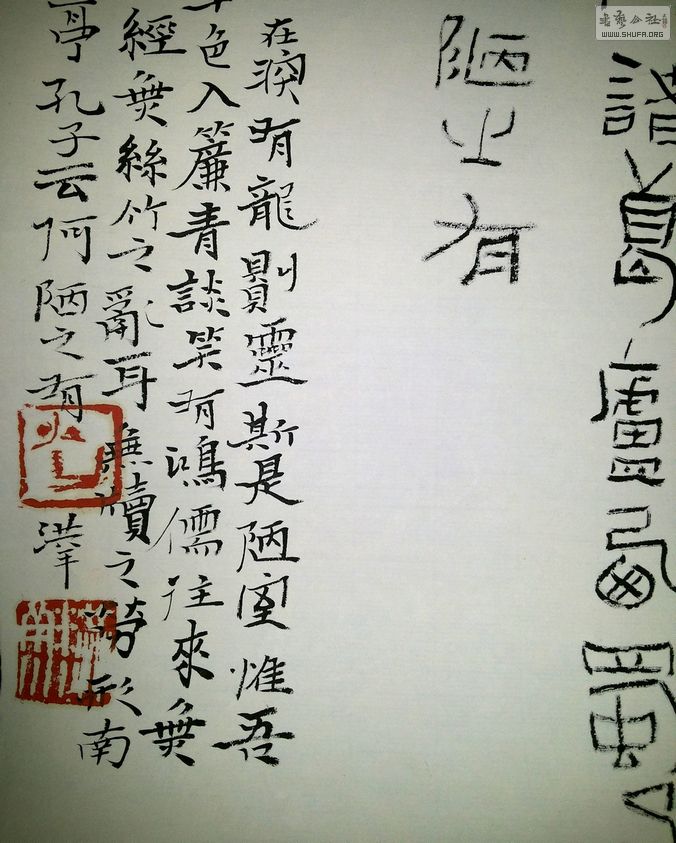 書藝公社
WWW.SHUFA.ORG
諸葛廬西蜀
陋之有
在深有龍則靈斯是陋室惟吾
草色入簾青談笑有鴻儒往來無
經無絲竹之亂耳無牘之勞形南
亭孔子云何陋之有